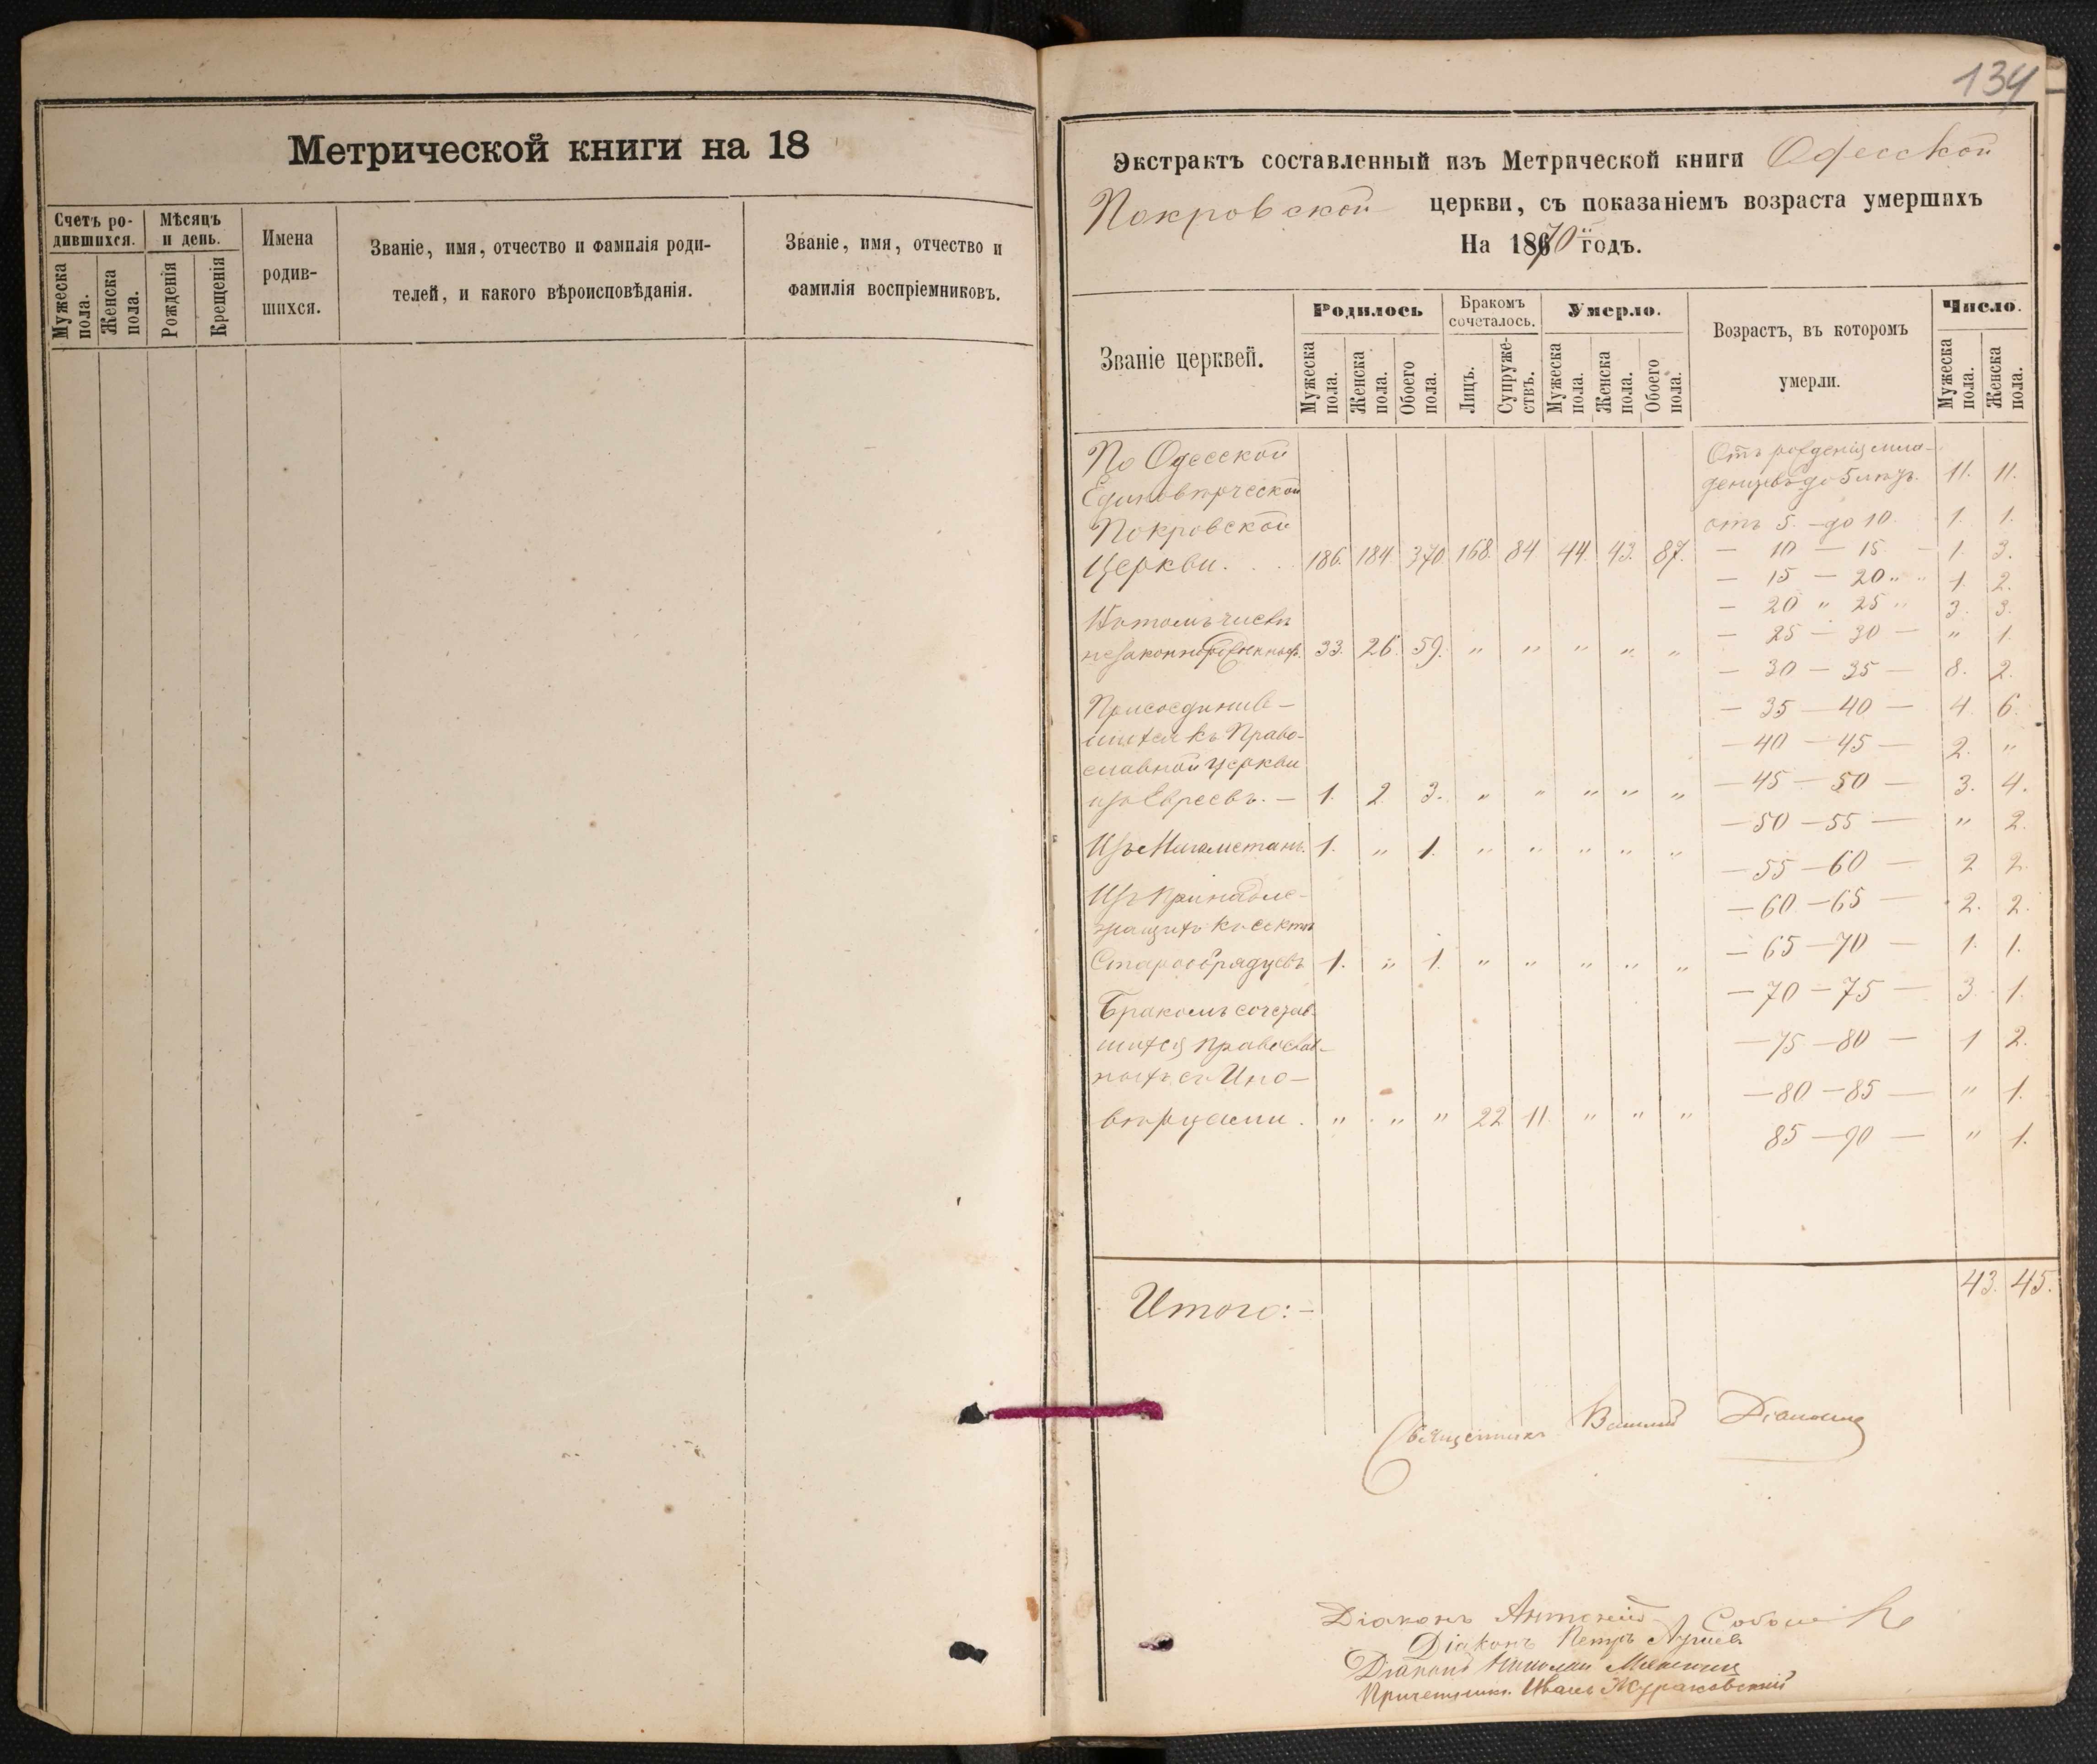 Метрической книги на 18
Счетъ ро-
дившихся.
Мѣсяцъ
и день.
Мужеска
пола.
Женска
пола.
Рожденія
Крещенія
Имена
родив-
шихся.
Званіе, имя, отчество и фамилія роди-
телей, и какого вѣроисповѣданія.
Званіе, имя, отчество и
фамилія воспріемниковъ.
134
Экстрактъ составленный изъ Метрической книги Одесской
Покровской церкви, съ показаніемъ возраста умершихъ
На 1870 годъ.
Званіе церквей.
Родилось
Бракомъ
сочеталось.
Умерло.
Возрастъ, въ которомъ
умерли.
Число.
Мужеска
пола.
Женска
пола.
Обоего
пола.
Лицъ.
Супруже-
ствъ.
Мужеска
пола.
Женска
пола.
Обоего
пола.
Мужеска
пола.
Женска
пола.
По Одесской
Единовѣрческой
Покровской
Церкви. . . 186. 184. 370. 168. 84 44. 43. 87.
Въ томъ числѣ
незаконнорожденныхъ. 33. 26. 59. " " " " "
Присоединив-
шихся къ Право-
славной церкви
изъ Евреевъ. — 1. 2 3. " " " " "
Изъ Магометанъ. 1. " 1. " " " " "
Изъ принадле-
жащихъ къ сектѣ
Старообрядцевъ 1. " 1. " " " " "
Бракомъ сочетав-
шихся православ-
ныхъ съ Ино-
вѣрцами. " " " 22 11. " " "
Отъ рожденія мла-
денцевъ до 5 лѣтъ. 11. 11.
отъ 5. — до 10. 1. 1.
— 10 — 15 — 1. 3.
— 15 — 20 " " 1. 2.
— 20 " 25 " 3. 3.
— 25 — 30 — " 1.
— 30 — 35 — 8. 2.
— 35 — 40 — 4. 6.
— 40 — 45 — 2. "
— 45 — 50 — 3. 4.
— 50 — 55 — " 2.
— 55 — 60 — 2 2.
— 60 — 65 — 2. 2.
— 65 — 70 — 1. 1.
— 70 — 75 — 3. 1.
— 75 — 80 — 1 2.
— 80 — 85 — " 1.
85 — 90 — " 1.
Итого: — 43. 45.
Священникъ Василій
Діаконъ Антоній
Діаконъ Петръ
Діаконъ Николай
Причетникъ Иванъ Жураковскій